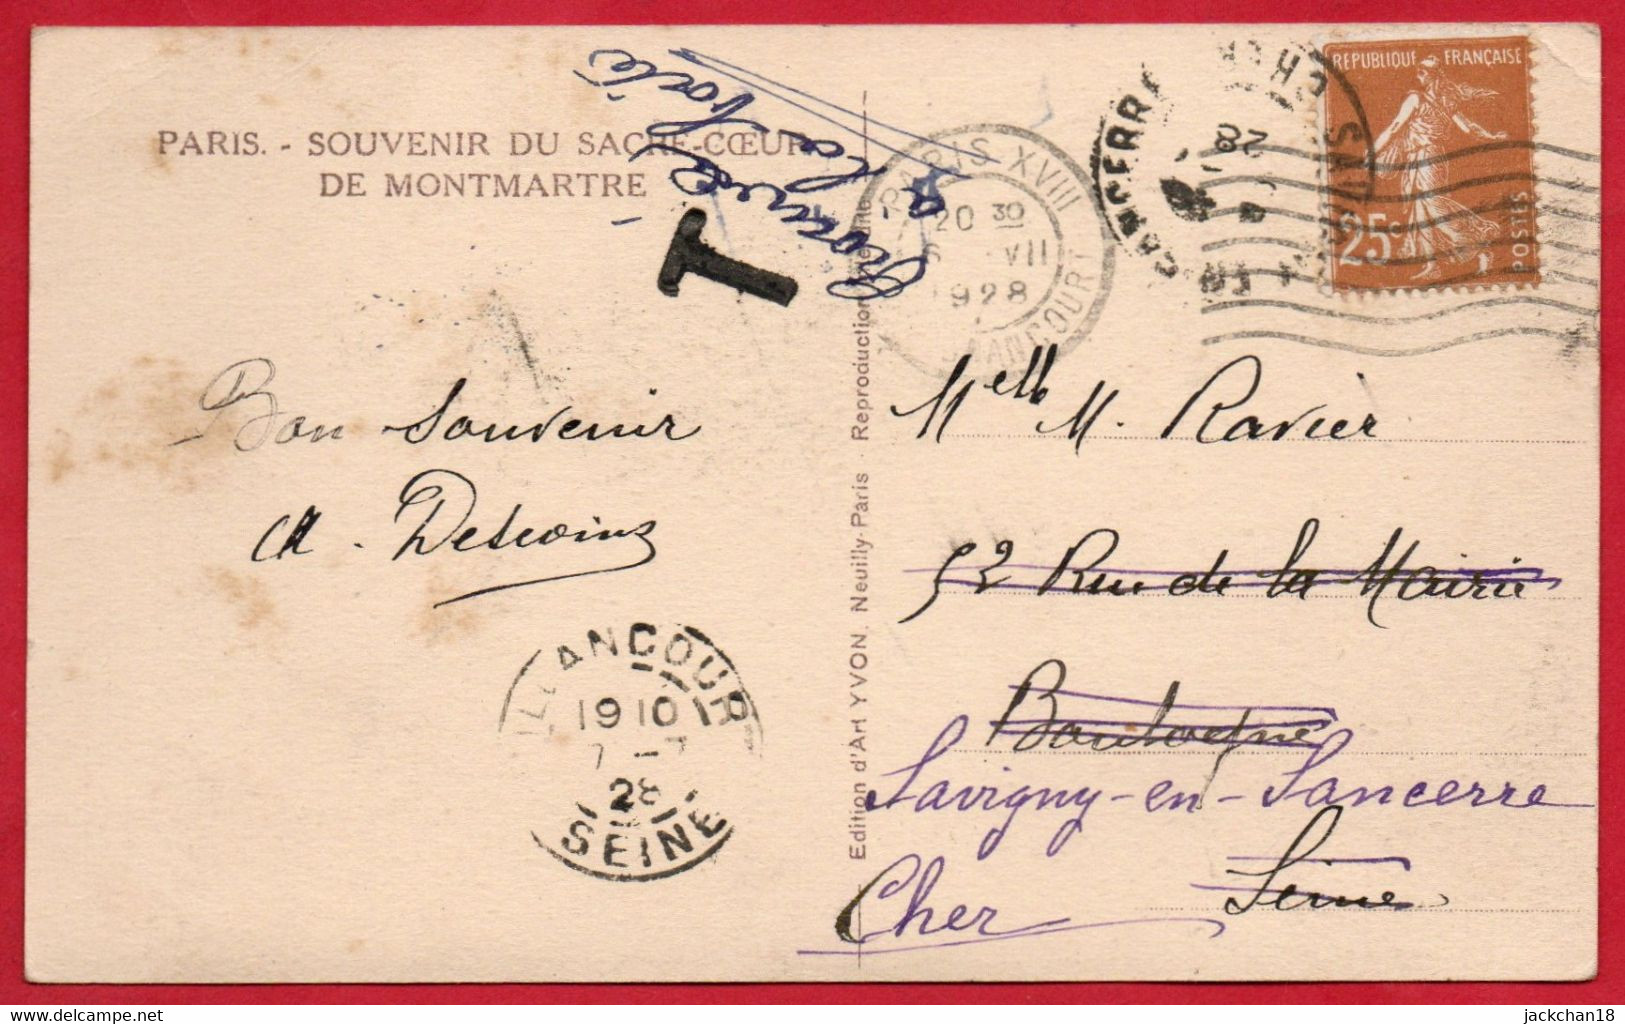 PARIS. - SOUVENIR DU SACRÉ-CŒUR
DE MONTMARTRE
Trouvé
à la boîte
T
PARIS XVIII
20 30
6 VII
1928
SANCERRE
CHER
28
RÉPUBLIQUE FRANÇAISE
25c
POSTES
Bon souvenir
Melle M. Ravier
52 Rue de la Mairie
Boulogne
Savigny-en-Sancerre
Seine
Cher
ILLANCOUR
19 10
7 - 7
28
SEINE
Edition d'Art YVON, Neuilly-Paris - Reproduction interdite
jackchan18